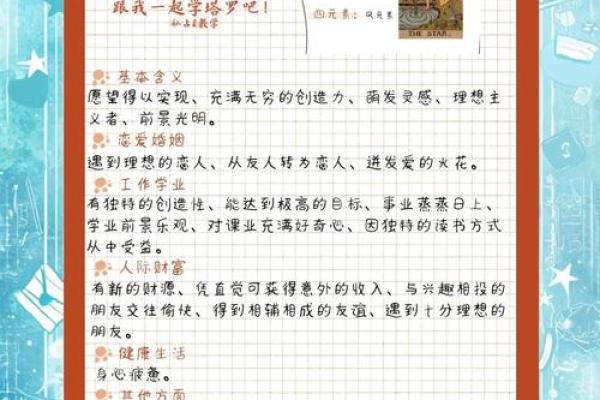 跟我一起学塔罗吧！
私占&教学
四元素：风元素
THE STAR.
基本含义
愿望得以实现、充满无穷的创造力、萌发灵感、理想主
义者、前景光明。
恋爱婚姻
遇到理想的恋人、从友人转为恋人、迸发爱的火花。
工作学业
有独特的创造性、能达到极高的目标、事业蒸蒸日上、
学业前景乐观、对课业充满好奇心、因独特的读书方式
从中受益。
人际财富
有新的财源、凭直觉可获得意外的收入、与兴趣相投的
朋友交往愉快、得到相辅相成的友谊、遇到十分理想的
朋友。
健康生活
身心疲惫。
其他方面